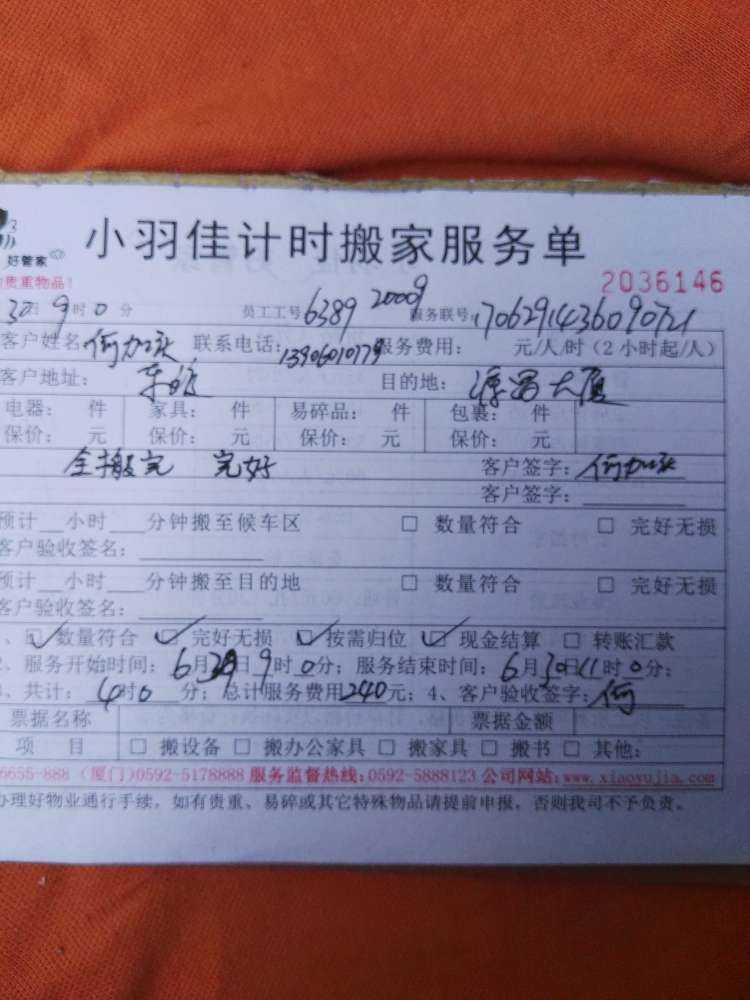 小羽佳计时搬家服务单
好管家
贵重物品！
2036146
30日9时0分 员工工号6389 20009 服务联号：1706291436090721
客户姓名：何加 联系电话： 服务费用： 元/人/时（2小时起/人）
客户地址： 目的地：源昌大厦
电器： 件 家具： 件 易碎品： 件 包裹： 件
保价： 元 保价： 元 保价： 元 保价： 元
全搬完 完好 客户签字：何加
客户签字：
预计 小时 分钟搬至候车区 □ 数量符合 □ 完好无损
客户验收签名：
预计 小时 分钟搬至目的地 □ 数量符合 □ 完好无损
客户验收签名：
、☑数量符合 ☑完好无损 ☑按需归位 ☑现金结算 □ 转账汇款
2、服务开始时间：6月 日9时0分；服务结束时间：6月30日11时0分；
、共计：4时0分；总计服务费用240元；4、客户验收签字：何
票据名称 票据金额
项 目 □ 搬设备 □ 搬办公家具 □ 搬家具 □ 搬书 □ 其他：
6655-888（厦门）0592-5178888 服务监督热线：0592-5888123 公司网站：www.xiaoyujia.com
办理好物业通行手续，如有贵重、易碎或其它特殊物品请提前申报，否则我司不予负责。